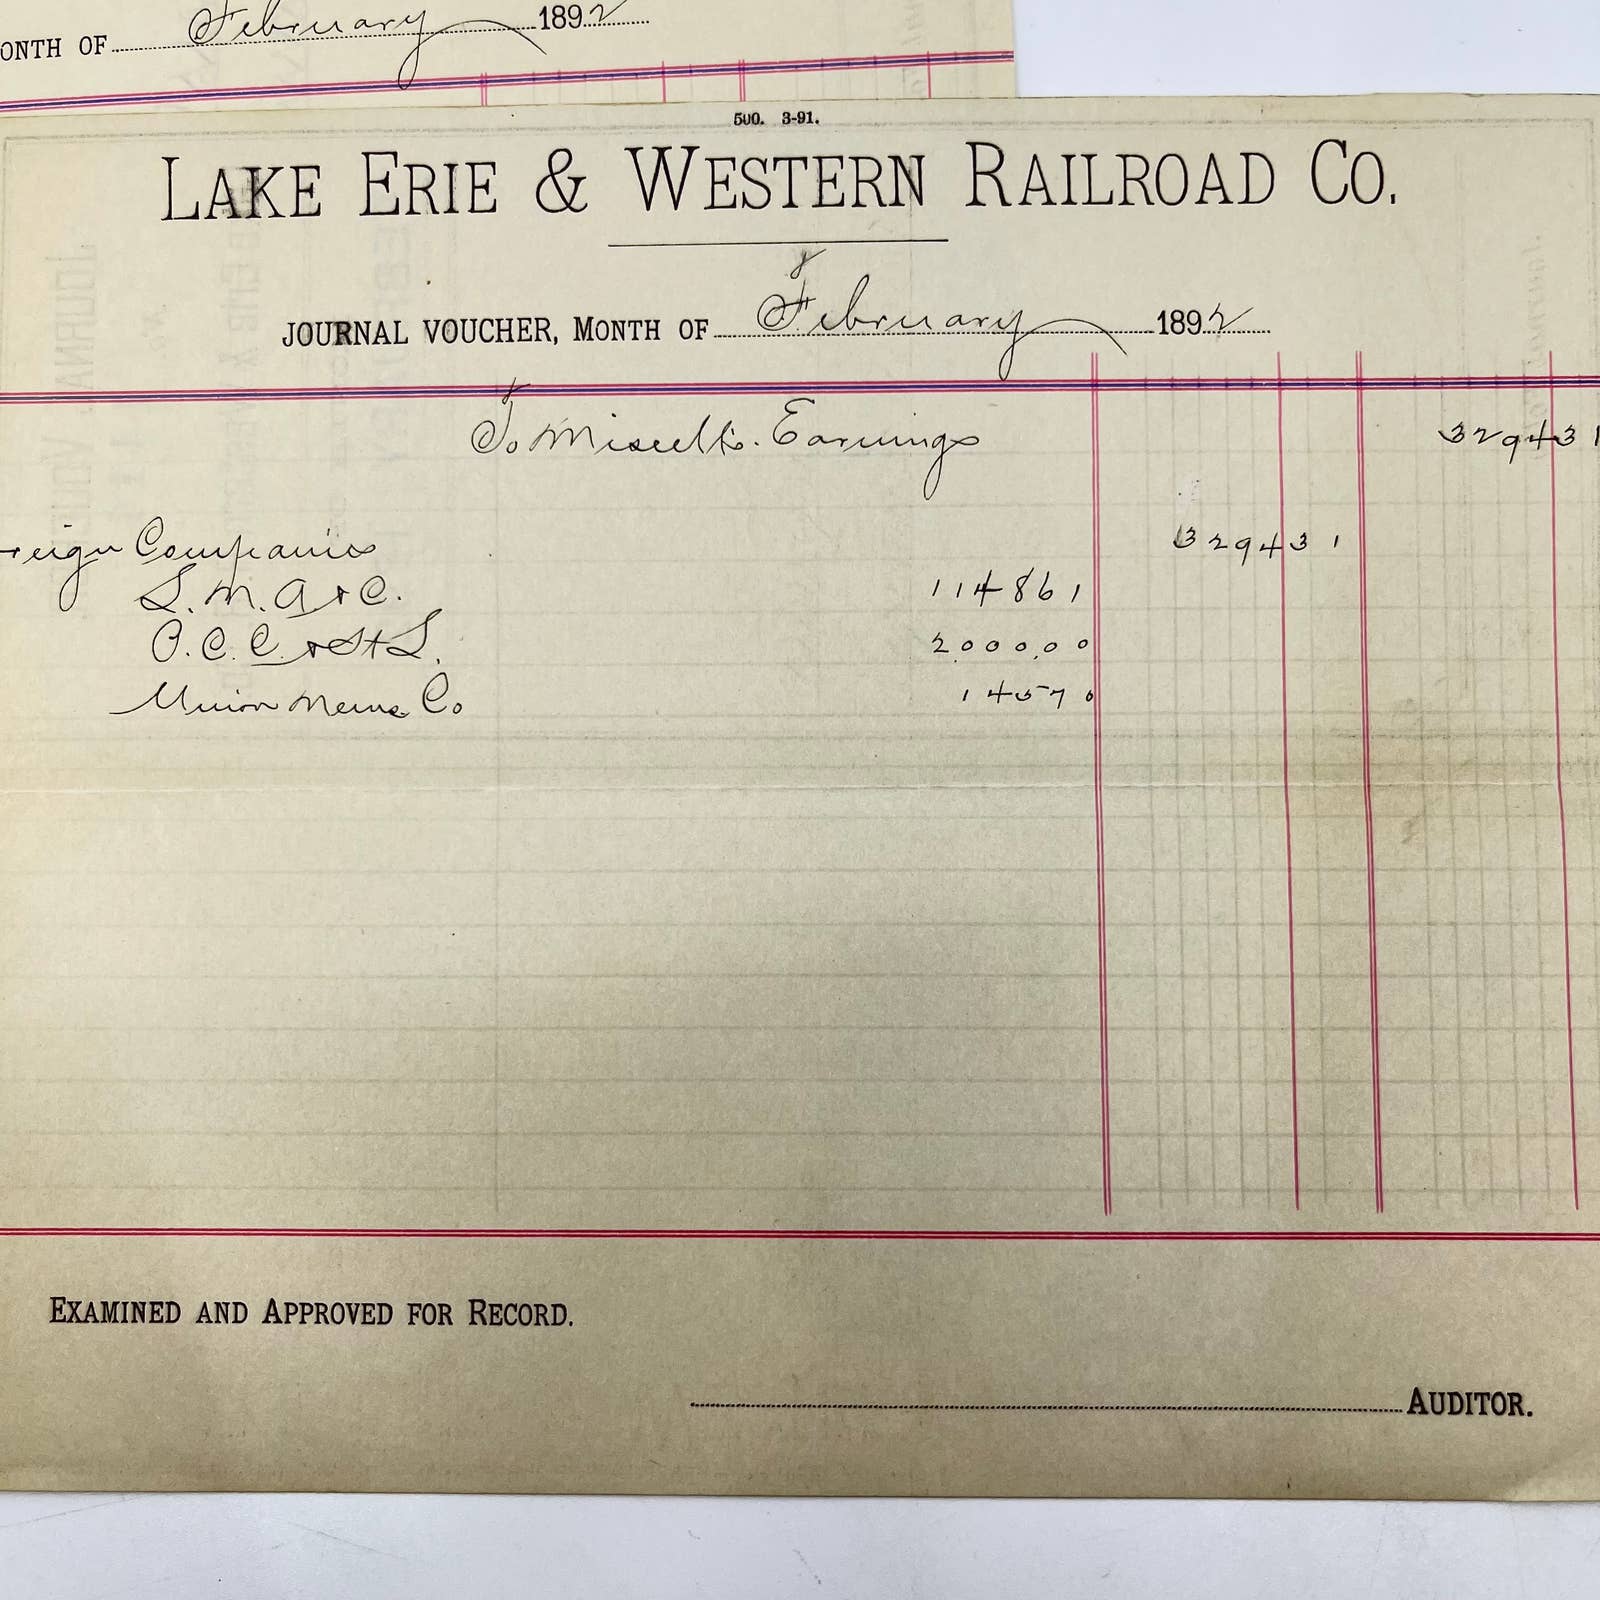 ONTH OF February 1892
500. 3-91.
LAKE ERIE & WESTERN RAILROAD CO.
JOURNAL VOUCHER, MONTH OF February 1892
To Miscell's. Earnings 3294 31
reign Companies 3294 31
L.M.A & C. 1148 61
C.C.C & St L. 2000.00
Union News Co 145 70
EXAMINED AND APPROVED FOR RECORD.
AUDITOR.